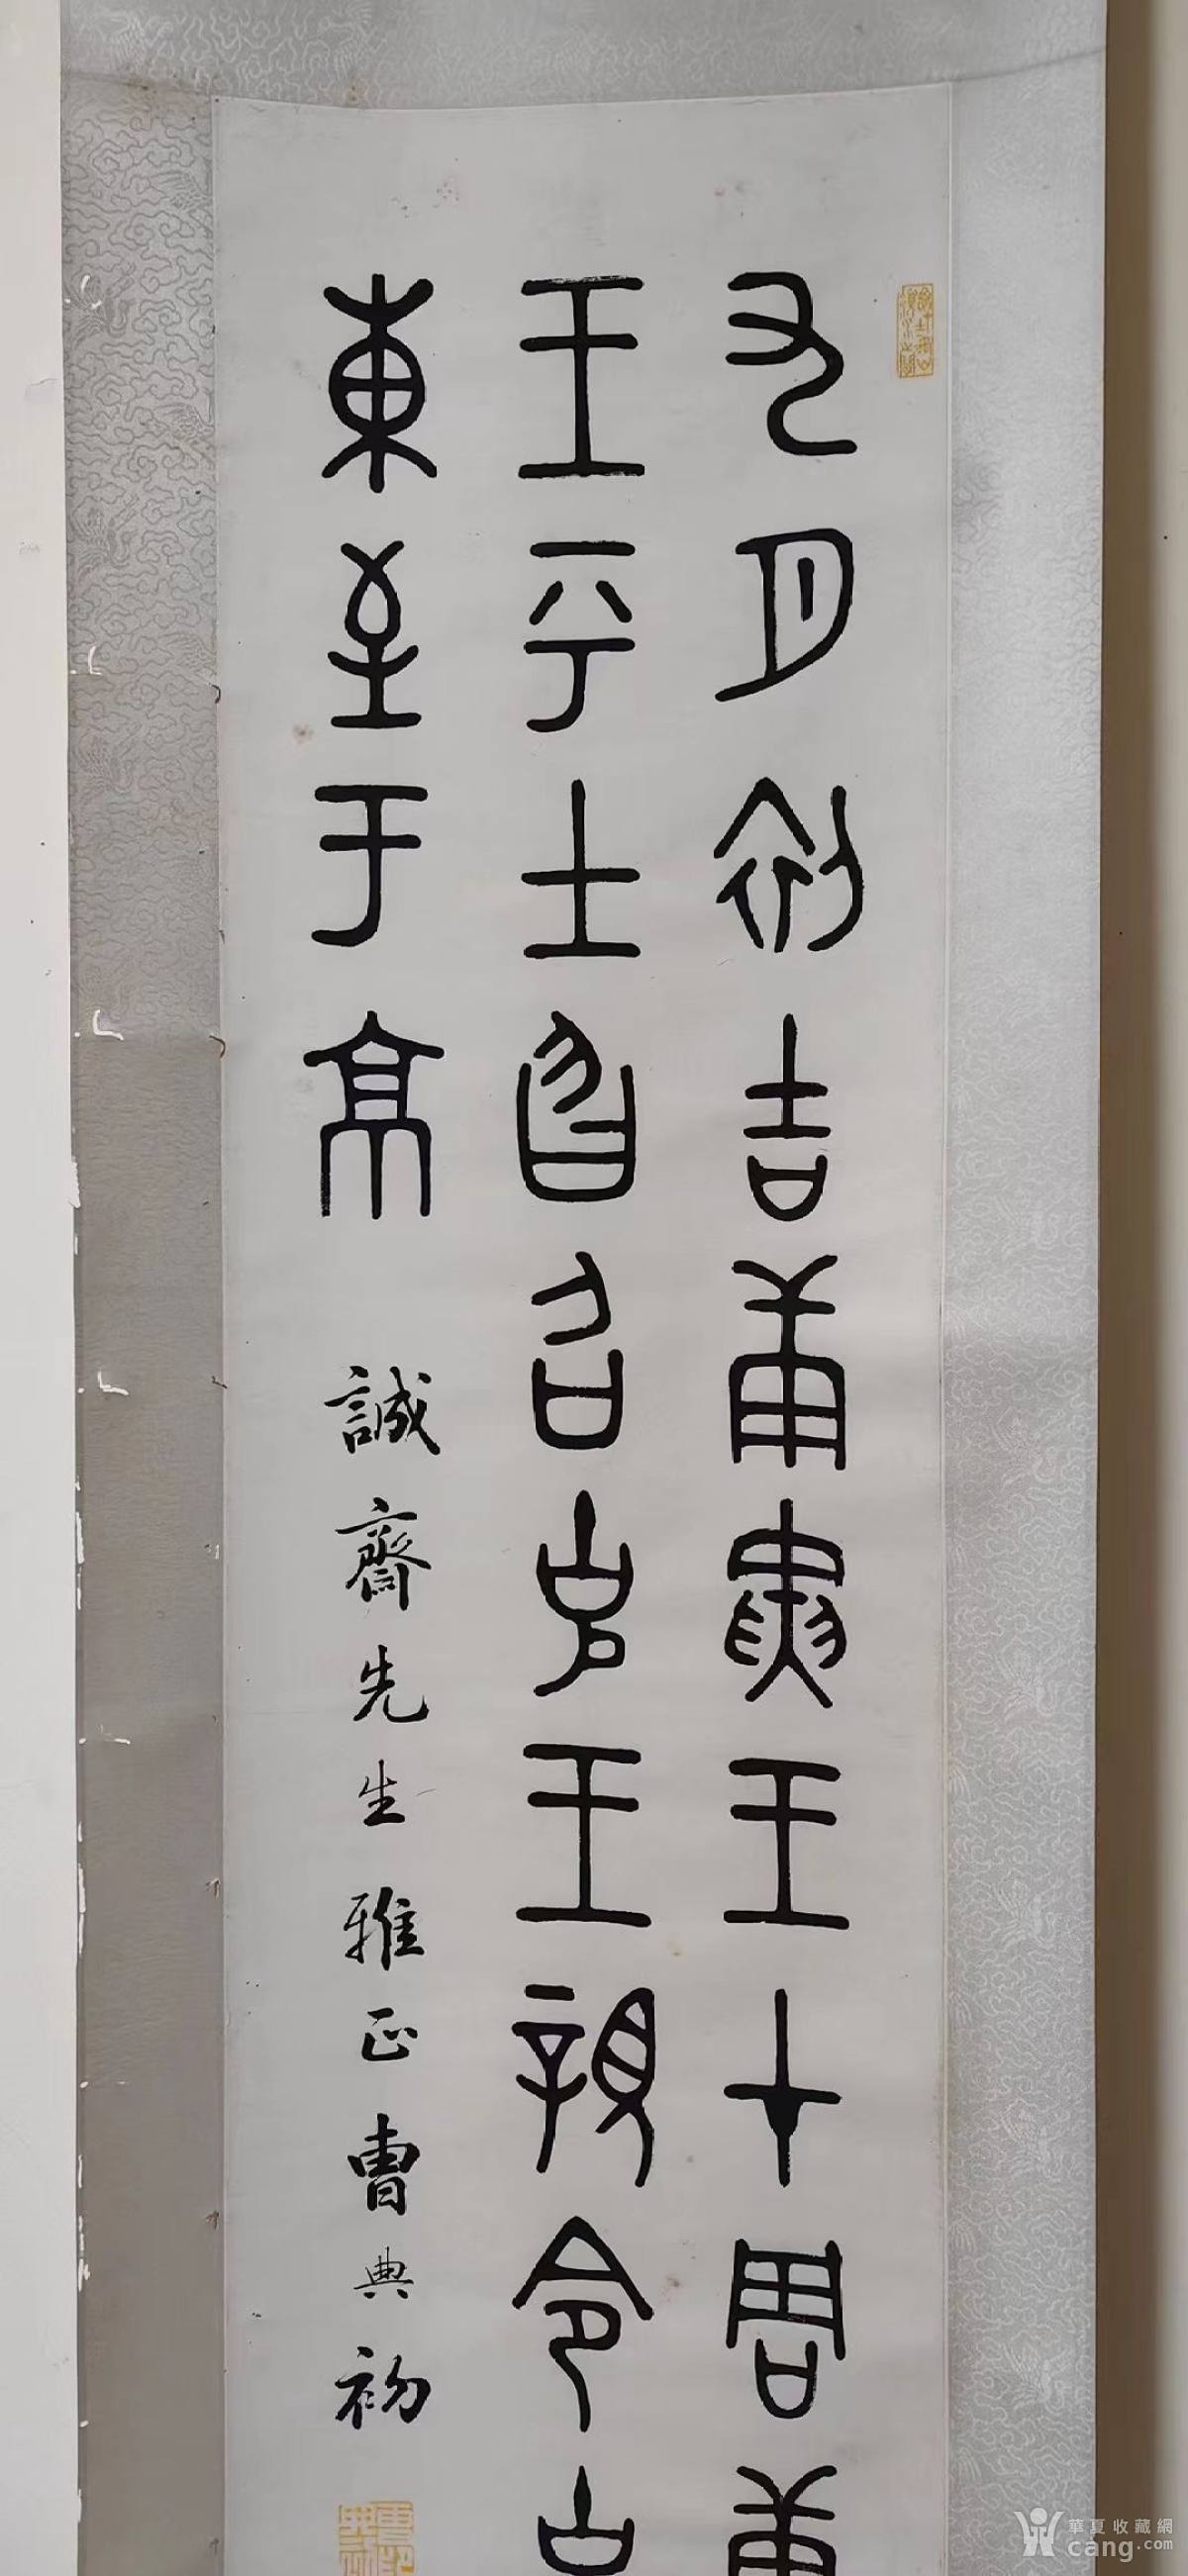 九月初吉庚寅王才周康
王乎士曶召克王親令克
東至于京
誠齋先生雅正曹典初
華夏收藏網
cang.com